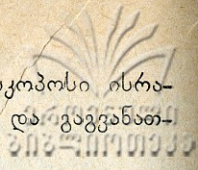 სკოპოსი ისრა-
და გაგვანათ-